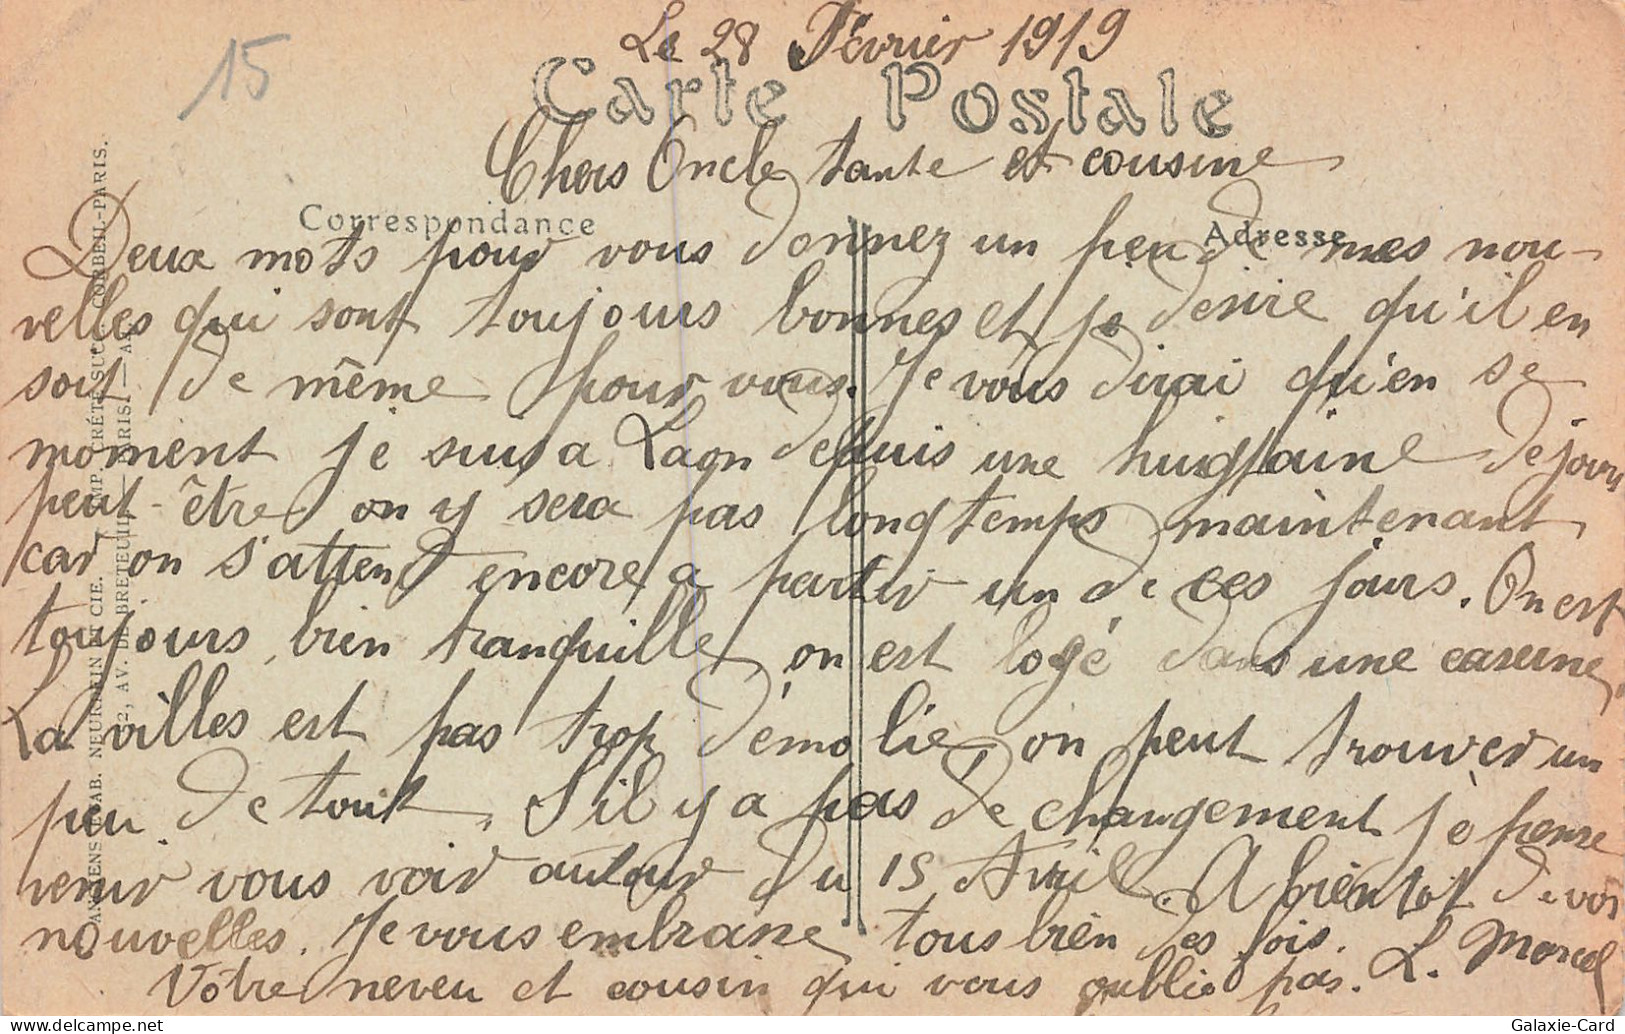 15
Le 28 Février 1919
Carte Postale
Chers Oncle tante et cousine
Correspondance
Adresse
Deux mots pour vous donnez un peu de mes nou-
velles qui sont toujours bonnes et je desire qu'il en
soit de même pour vous. Je vous dirai qu'en se
moment je suis a Laon depuis une huigtaine de jours
peut-être on y sera pas longtemps maintenant
car on s'attend encore a partir un de ces jours. On est
toujours bien tranquille, on est logé dans une caserne,
La villes est pas trop démolie, on peut trouver un
peu de tout. S'il y a pas de changement je pense
venir vous voir autour du 15 Avril. A bientot de vos
nouvelles. Je vous embrasse tous bien des fois. L. Marcel
Votre neveu et cousin qui vous oublie pas.
ANCIENS ETAB. NEURDEIN ET CIE. IMP. CRÉTÉ SUCC. CORBEIL-PARIS.
52, AV. DE BRETEUIL — PARIS. —
Galaxie-Card